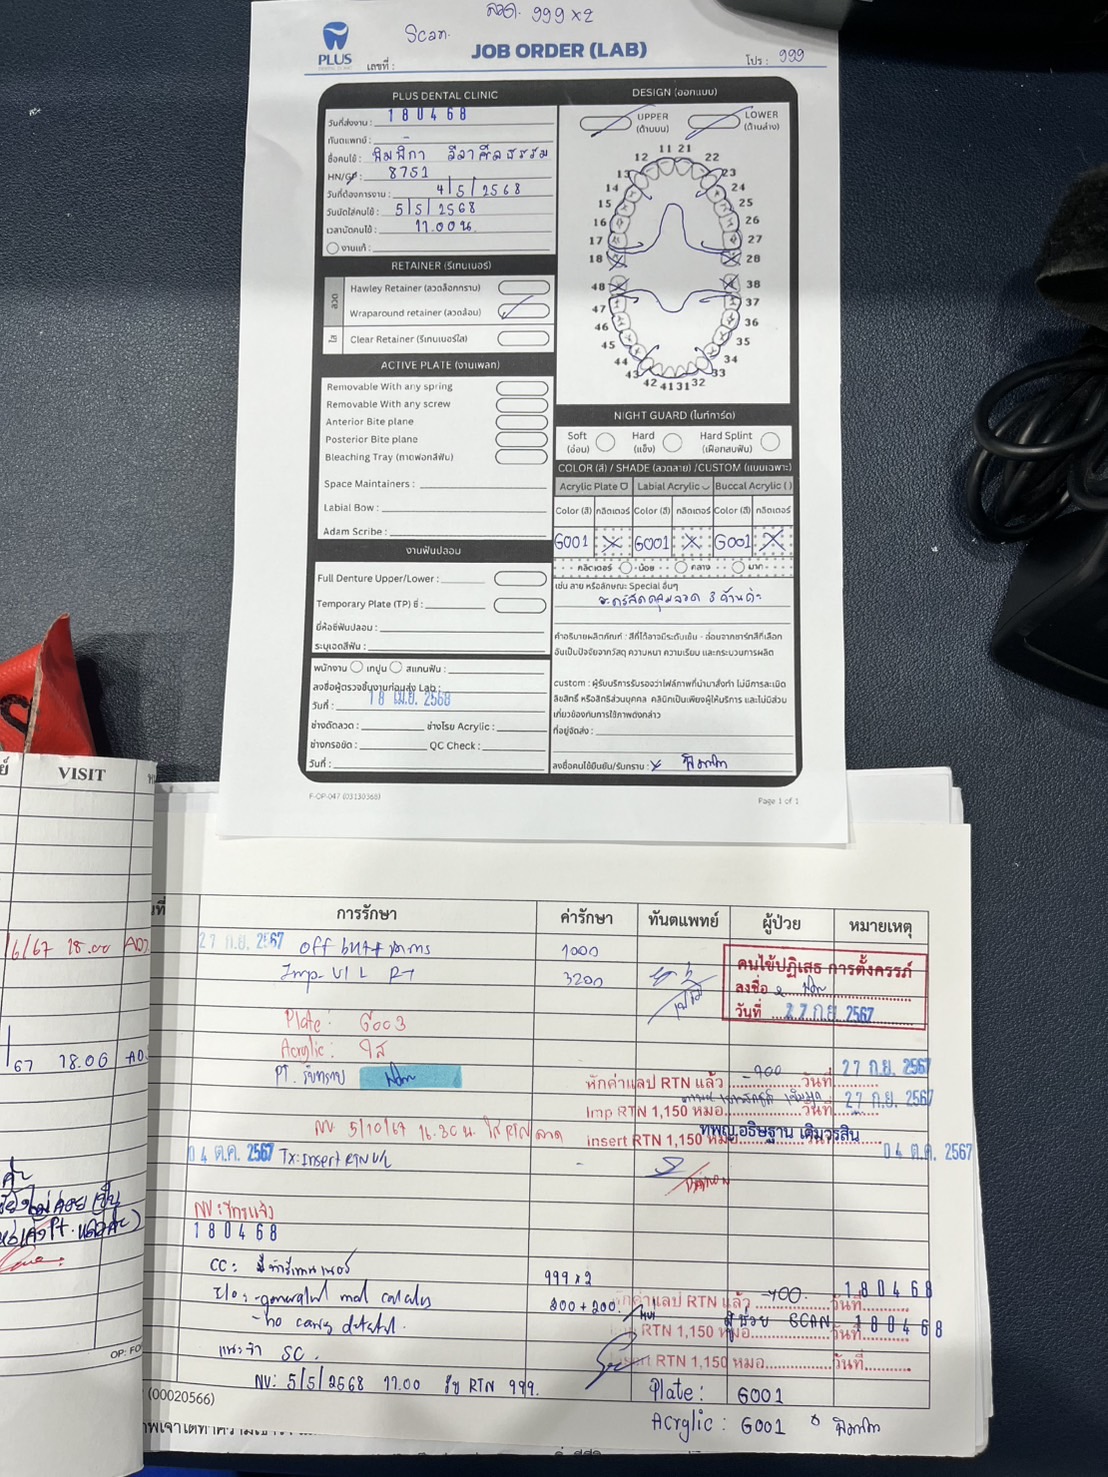 ลวด. 999 x 2
Scan.
PLUS
JOB ORDER (LAB)
เลขที่ :
โปร : 999
PLUS DENTAL CLINIC
วันที่ส่งงาน : 180468
ทันตแพทย์ : -
ชื่อคนไข้ :
HN/ : 8751
วันที่ต้องการงาน : 4/5/2568
วันนัดใส่คนไข้ : 5/5/2568
เวลานัดคนไข้ : 17.00 น.
งานแก้ :
RETAINER (รีเทนเนอร์)
ลวด
Hawley Retainer (ลวดล็อกกราม)
Wraparound retainer (ลวดล้อม)
ใส
Clear Retainer (รีเทนเนอร์ใส)
ACTIVE PLATE (งานเพลท)
Removable With any spring
Removable With any screw
Anterior Bite plane
Posterior Bite plane
Bleaching Tray (ถาดฟอกสีฟัน)
Space Maintainers :
Labial Bow :
Adam Scribe :
งานฟันปลอม
Full Denture Upper/Lower :
Temporary Plate (TP) ซี่ :
ยี่ห้อซี่ฟันปลอม :
ระบุเฉดสีฟัน :
พนักงาน เทปูน สแกนฟัน :
ลงชื่อผู้ตรวจชิ้นงานก่อนส่ง Lab :
วันที่ : 18 เม.ย. 2568
ช่างดัดลวด : ช่างโรย Acrylic :
ช่างกรอขัด : QC Check :
วันที่ :
DESIGN (ออกแบบ)
UPPER (ด้านบน)
LOWER (ด้านล่าง)
11 21
12 22
13 23
14 24
15 25
16 26
17 27
18 28
48 38
47 37
46 36
45 35
44 34
43 33
42 41 31 32
NIGHT GUARD (ไนท์การ์ด)
Soft (อ่อน) Hard (แข็ง) Hard Splint (เฝือกสบฟัน)
COLOR (สี) / SHADE (ลวดลาย) /CUSTOM (แบบเฉพาะ)
Acrylic Plate Labial Acrylic Buccal Acrylic ( )
Color (สี) กลิตเตอร์ Color (สี) กลิตเตอร์ Color (สี) กลิตเตอร์
G001 G001 G001
กลิตเตอร์ น้อย กลาง มาก
เช่น ลาย หรือลักษณะ Special อื่นๆ
คำอธิบายผลิตภัณฑ์ : สีที่ได้อาจมีระดับเข้ม - อ่อนจากชาร์ทสีที่เลือก
อันเป็นปัจจัยจากวัสดุ ความหนา ความเรียบ และกระบวนการผลิต
custom : ผู้รับบริการรับรองว่าไฟล์ภาพที่นำมาสั่งทำ ไม่มีการละเมิด
ลิขสิทธิ์ หรือสิทธิส่วนบุคคล คลินิกเป็นเพียงผู้ให้บริการ และไม่มีส่วน
เกี่ยวข้องกับการใช้ภาพดังกล่าว
ที่อยู่จัดส่ง :
ลงชื่อคนไข้ยืนยัน/รับทราบ :
F-OP-047 (03130368)
Page 1 of 1
VISIT
/6/67 18.00
67 18.00
การรักษา ค่ารักษา ทันตแพทย์ ผู้ป่วย หมายเหตุ
27 ก.ย. 2567 off 1000
Imp U/L RT 3200
คนไข้ปฏิเสธ การตั้งครรภ์
ลงชื่อ
วันที่ 27 ก.ย. 2567
Plate : G003
Acrylic : ใส
PT. รับทราบ
หักค่าแลป RTN แล้ว -900 วันที่ 27 ก.ย. 2567
Imp RTN 1,150 หมอ วันที่ 27 ก.ย. 2567
NV 5/10/67 16.30 น. ใส่ RTN ลวด
insert RTN 1,150 หมอ ทพญ.อธิษฐาน เติมวรสิน 04 ต.ค. 2567
04 ต.ค. 2567 Tx: Insert RTN U/L -
180468
CC:
999 x 2
200 + 200
หักค่าแลป RTN แล้ว -400 วันที่ 180468
- no caries
RTN 1,150 หมอ ผู้ช่วย SCAN วันที่ 180468
แนะนำ SC.
insert RTN 1,150 หมอ วันที่
NV: 5/5/2568 17.00 รับ RTN 999.
Plate : G001
Acrylic : G001
(00020566)